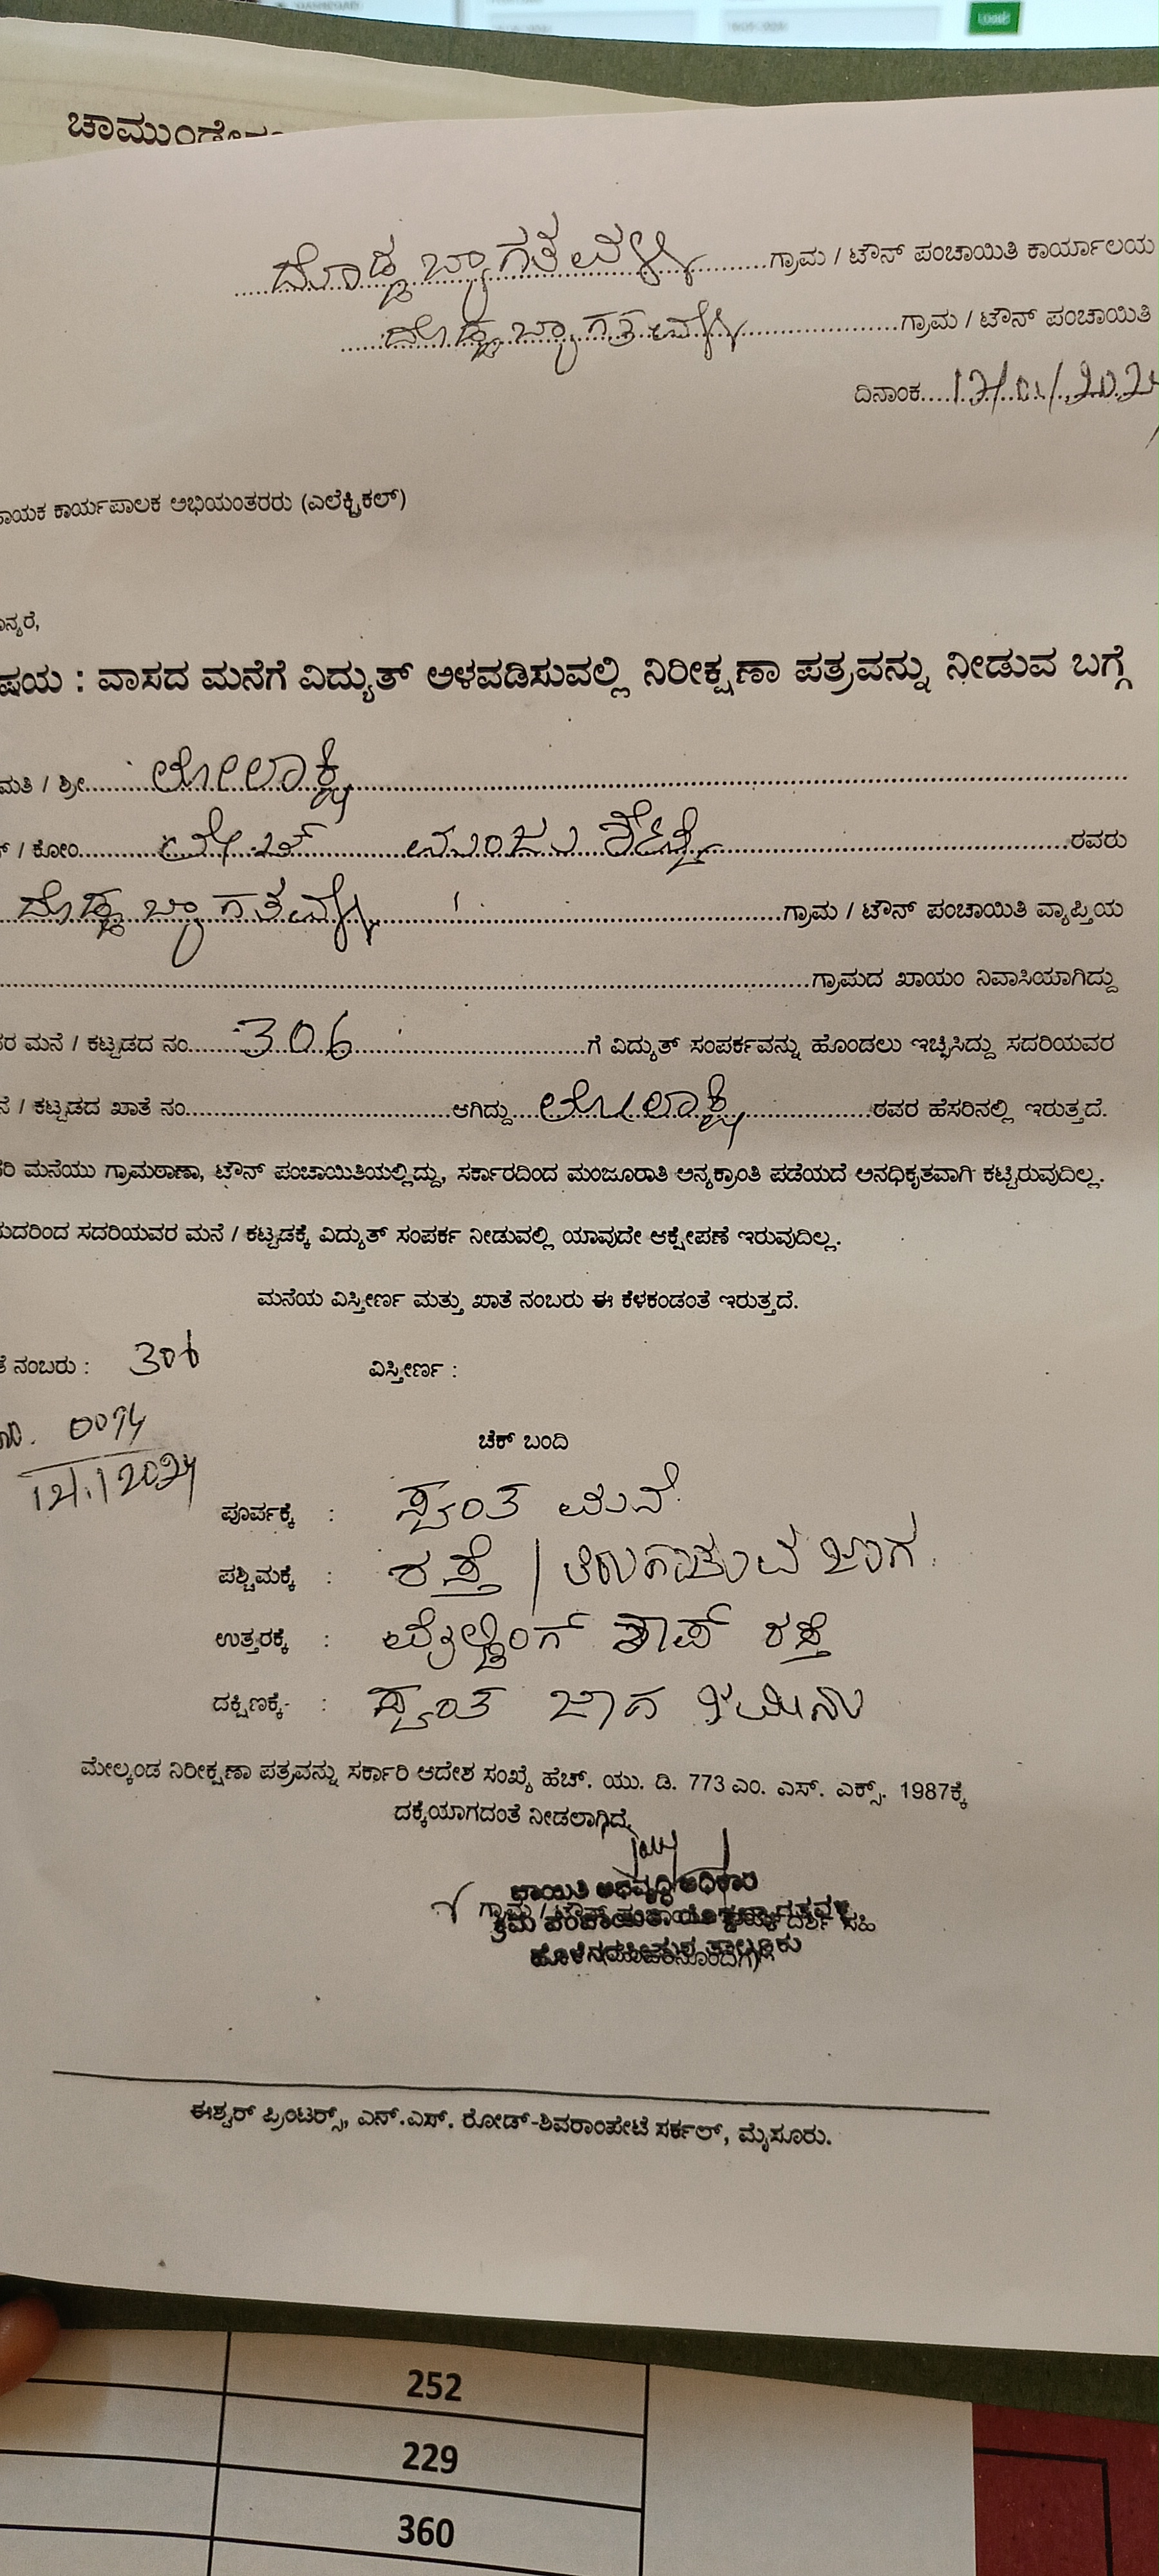 Loads
ಚಾಮುಂಡೇ
ದೊಡ್ಡಬ್ಯಾಗತವಳ್ಳಿ ಗ್ರಾಮ / ಟೌನ್ ಪಂಚಾಯಿತಿ ಕಾರ್ಯಾಲಯ
ದೊಡ್ಡಬ್ಯಾಗತವಳ್ಳಿ ಗ್ರಾಮ / ಟೌನ್ ಪಂಚಾಯಿತಿ
ದಿನಾಂಕ
ಾಯಕ ಕಾರ್ಯಪಾಲಕ ಅಭಿಯಂತರರು (ಎಲೆಕ್ಟ್ರಿಕಲ್)
ನ್ಯರೆ,
ಷಯ : ವಾಸದ ಮನೆಗೆ ವಿದ್ಯುತ್ ಅಳವಡಿಸುವಲ್ಲಿ ನಿರೀಕ್ಷಣಾ ಪತ್ರವನ್ನು ನೀಡುವ ಬಗ್ಗೆ
ಮತಿ / ಶ್ರೀ ಲೋಲಾಕ್ಷಿ
/ ಕೋಂ ಲೇಟ್ ಮಂಜು ಶೆಟ್ಟಿ ರವರು
ದೊಡ್ಡಬ್ಯಾಗತವಳ್ಳಿ ಗ್ರಾಮ / ಟೌನ್ ಪಂಚಾಯಿತಿ ವ್ಯಾಪ್ತಿಯ
ಗ್ರಾಮದ ಖಾಯಂ ನಿವಾಸಿಯಾಗಿದ್ದು
ರ ಮನೆ / ಕಟ್ಟಡದ ನಂ 306 ಗೆ ವಿದ್ಯುತ್ ಸಂಪರ್ಕವನ್ನು ಹೊಂದಲು ಇಚ್ಛಿಸಿದ್ದು ಸದರಿಯವರ
ನೆ / ಕಟ್ಟಡದ ಖಾತೆ ನಂ ಆಗಿದ್ದು ಲೋಲಾಕ್ಷಿ ರವರ ಹೆಸರಿನಲ್ಲಿ ಇರುತ್ತದೆ.
ರಿ ಮನೆಯು ಗ್ರಾಮಠಾಣಾ, ಟೌನ್ ಪಂಚಾಯಿತಿಯಲ್ಲಿದ್ದು, ಸರ್ಕಾರದಿಂದ ಮಂಜೂರಾತಿ ಅನ್ಯಕ್ರಾಂತಿ ಪಡೆಯದೆ ಅನಧಿಕೃತವಾಗಿ ಕಟ್ಟಿರುವುದಿಲ್ಲ.
ುದರಿಂದ ಸದರಿಯವರ ಮನೆ / ಕಟ್ಟಡಕ್ಕೆ ವಿದ್ಯುತ್ ಸಂಪರ್ಕ ನೀಡುವಲ್ಲಿ ಯಾವುದೇ ಆಕ್ಷೇಪಣೆ ಇರುವುದಿಲ್ಲ.
ಮನೆಯ ವಿಸ್ತೀರ್ಣ ಮತ್ತು ಖಾತೆ ನಂಬರು ಈ ಕೆಳಕಂಡಂತೆ ಇರುತ್ತದೆ.
ತೆ ನಂಬರು : 306 ವಿಸ್ತೀರ್ಣ :
ಚೆಕ್ ಬಂದಿ
ಪೂರ್ವಕ್ಕೆ : ಸ್ವಂತ ಮನೆ
ಪಶ್ಚಿಮಕ್ಕೆ : ರಸ್ತೆ / ತಿರುಗಾಡುವ ಜಾಗ
ಉತ್ತರಕ್ಕೆ : ವೆಲ್ಡಿಂಗ್ ಶಾಪ್ ರಸ್ತೆ
ದಕ್ಷಿಣಕ್ಕೆ- : ಸ್ವಂತ ಜಮೀನು
ಮೇಲ್ಕಂಡ ನಿರೀಕ್ಷಣಾ ಪತ್ರವನ್ನು ಸರ್ಕಾರಿ ಆದೇಶ ಸಂಖ್ಯೆ ಹೆಚ್. ಯು. ಡಿ. 773 ಎಂ. ಎಸ್. ಎಕ್ಸ್. 1987ಕ್ಕೆ
ದಕ್ಕೆಯಾಗದಂತೆ ನೀಡಲಾಗಿದೆ
ಈಶ್ವರ್ ಪ್ರಿಂಟರ್ಸ್, ಎನ್.ಎಸ್. ರೋಡ್-ಶಿವರಾಂಪೇಟೆ ಸರ್ಕಲ್, ಮೈಸೂರು.
252
229
360